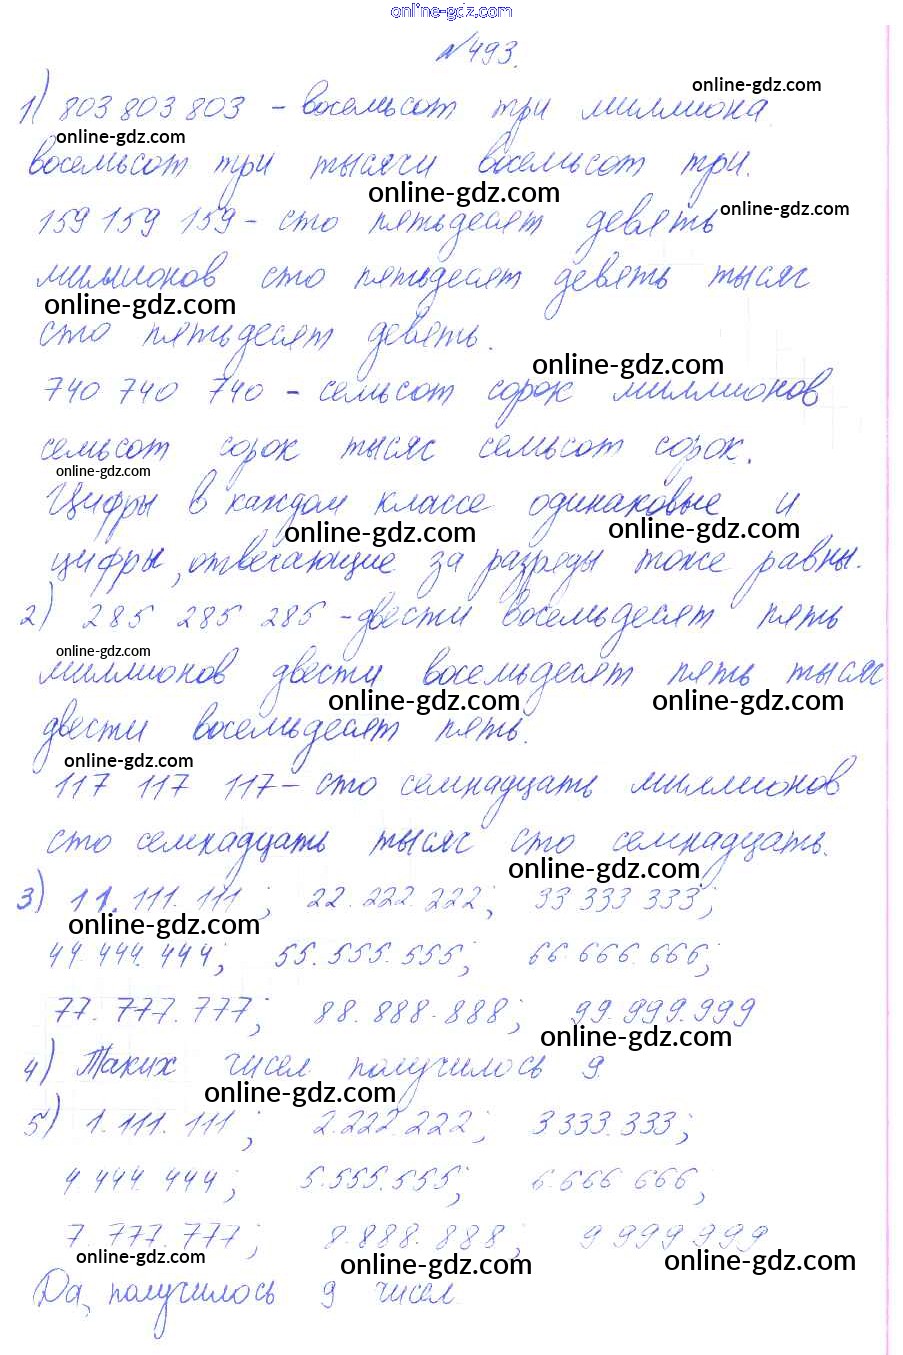 online-gdz.com
№493.
1) 803 803 803 - восемьсот три миллиона
online-gdz.com
online-gdz.com
восемьсот три тысячи восемьсот три.
online-gdz.com
159 159 159 - сто пятьдесят девять
online-gdz.com
миллионов сто пятьдесят девять тысяч
online-gdz.com
сто пятьдесят девять.
online-gdz.com
740 740 740 - семьсот сорок миллионов
семьсот сорок тысяч семьсот сорок.
online-gdz.com
Цифры в каждом классе одинаковые и
online-gdz.com online-gdz.com
цифры, отвечающие за разряды тоже равны.
2) 285 285 285 - двести восемьдесят пять
online-gdz.com
миллионов двести восемьдесят пять тысяч
online-gdz.com online-gdz.com
двести восемьдесят пять.
online-gdz.com
117 117 117 - сто семнадцать миллионов
сто семнадцать тысяч сто семнадцать.
online-gdz.com
3) 11.111.111; 22.222.222; 33 333 333;
online-gdz.com
44.444.444; 55.555.555; 66.666.666;
77.777.777; 88.888.888; 99.999.999
online-gdz.com
4) Таких чисел получилось 9
online-gdz.com
5) 1.111.111; 2.222.222; 3 333.333;
4.444.444; 5.555.555; 6.666 666;
7.777.777; 8.888.888; 9 999 999
online-gdz.com online-gdz.com online-gdz.com
Да, получилось 9 чисел